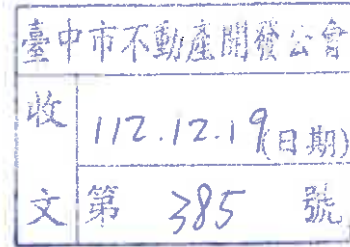 臺中市不動產開發公會
收 112.12.19(日期)
文 第 385 號